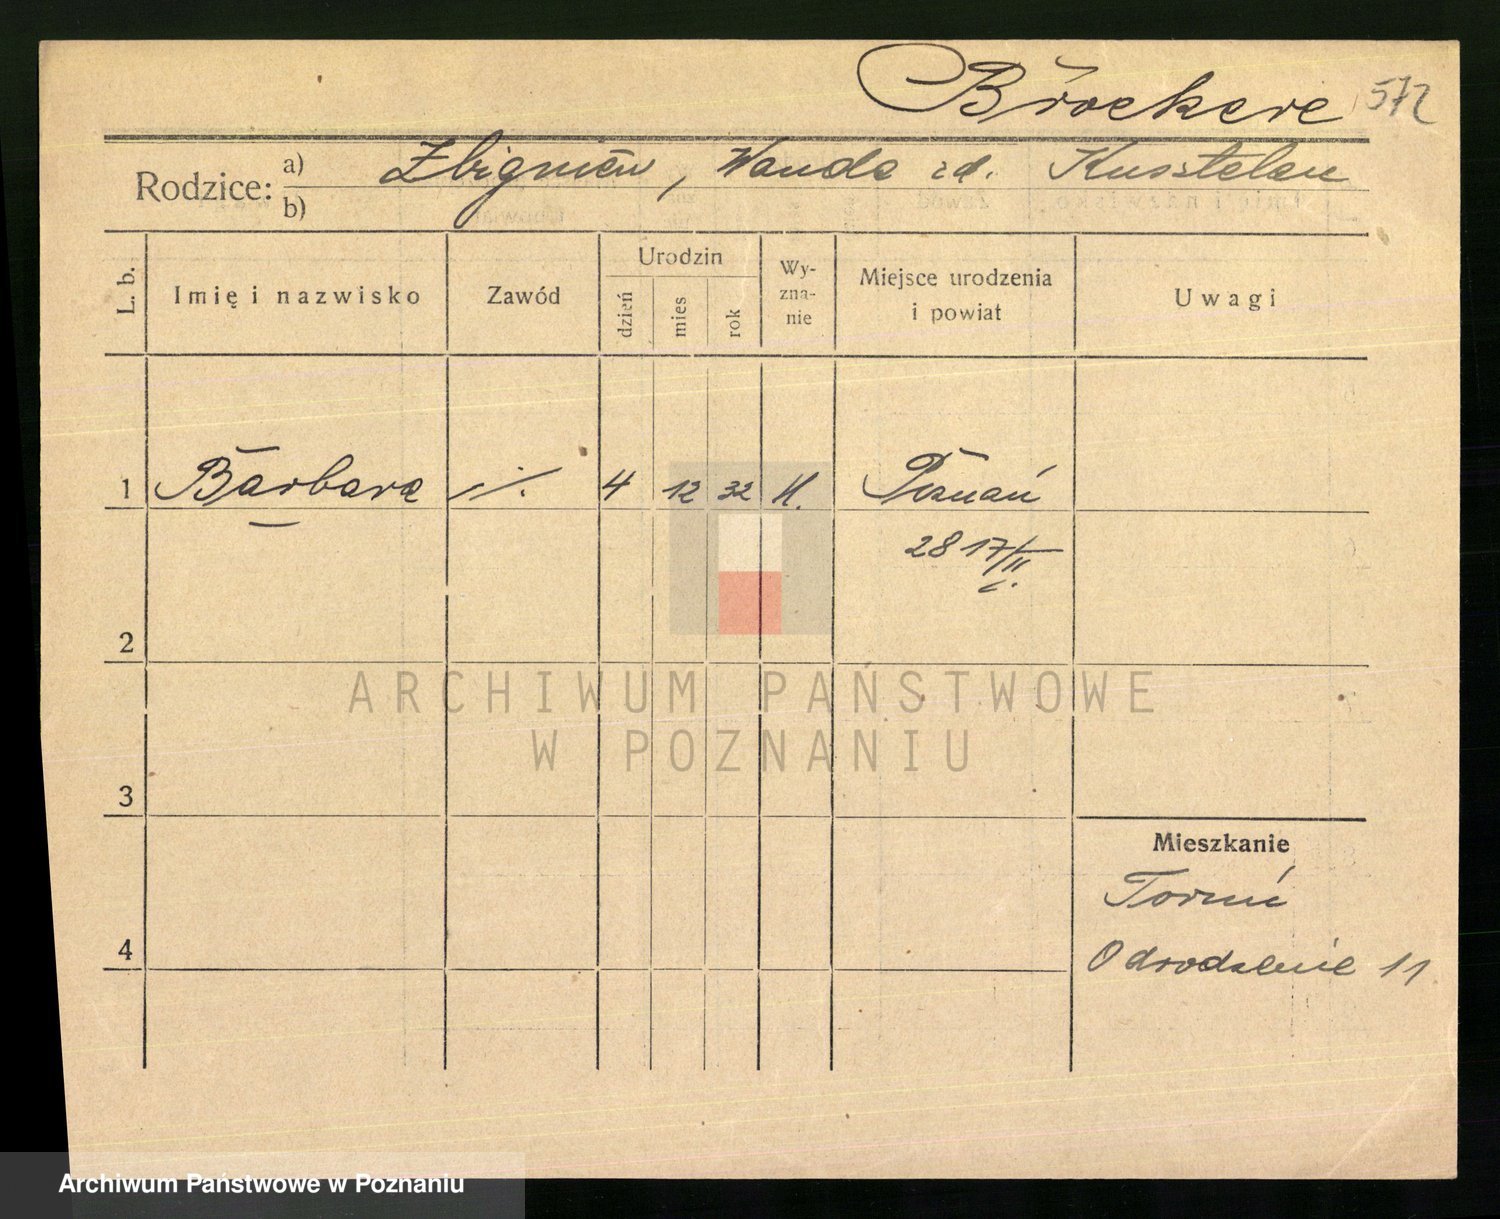 Brockere 572
Rodzice: a) Zbigniew, Wanda zd. Kusztelan
b)
L. b. Imię i nazwisko Zawód Urodzin dzień mies rok Wy-zna-nie Miejsce urodzenia i powiat Uwagi
1 Barbara ·/. 4 12 32 kl. Poznań
28 17/II.
2
ARCHIWUM PAŃSTWOWE
W POZNANIU
3
Mieszkanie
Toruń
4 Odrodzenie 11
Archiwum Państwowe w Poznaniu